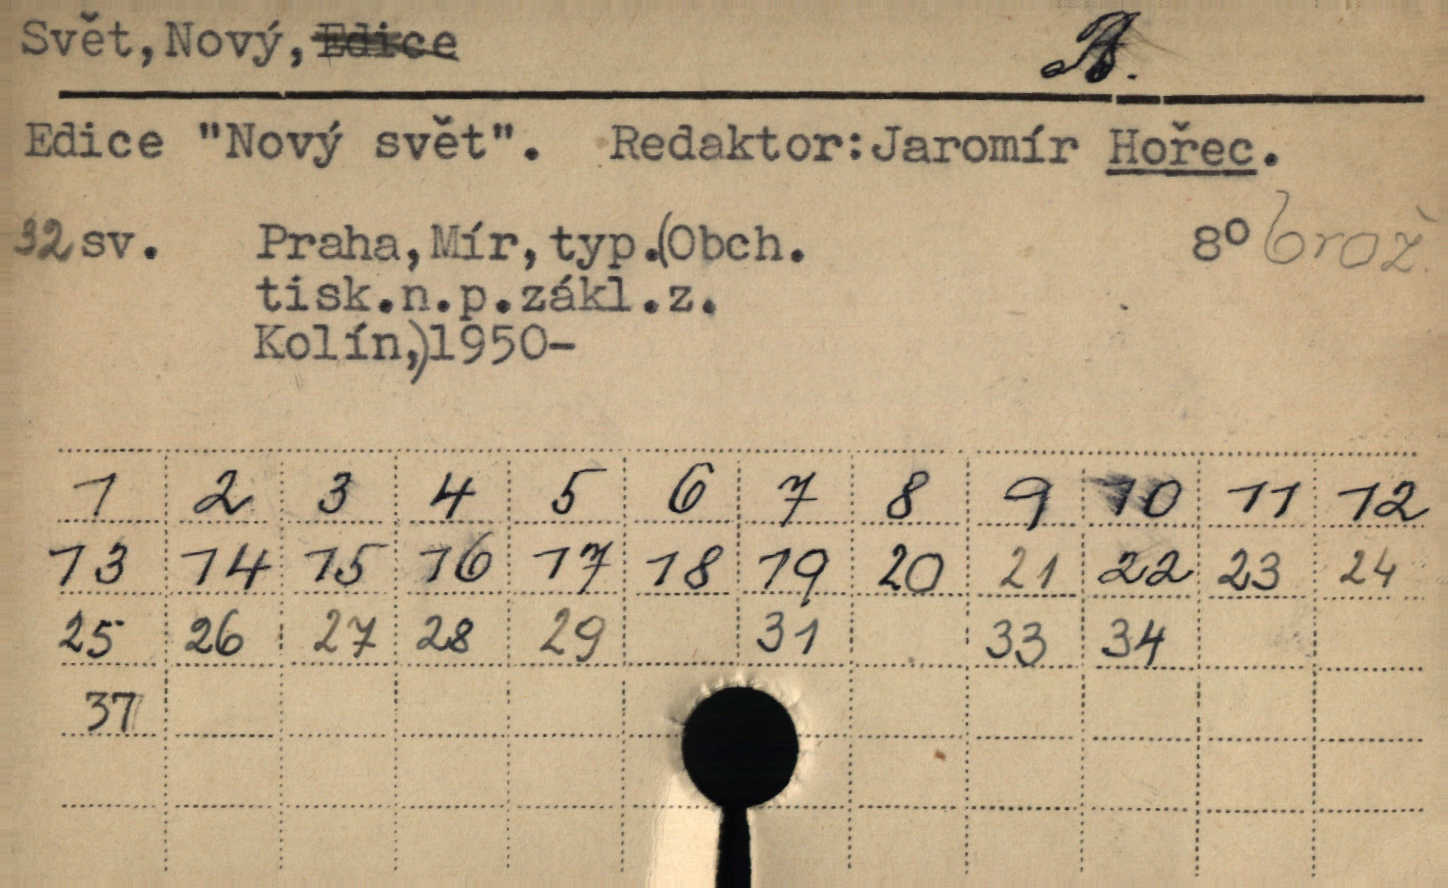 Svět, Nový, Edice A.
Edice "Nový svět". Redaktor: Jaromír Hořec.
32 sv. Praha, Mír, typ. (Obch. 8° brož.
tisk. n. p. zákl. z.
Kolín,) 1950-
1 2 3 4 5 6 7 8 9 10 11 12
13 14 15 16 17 18 19 20 21 22 23 24
25 26 27 28 29 31 33 34
37